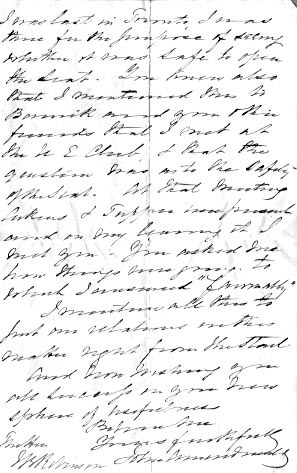 I was last in Toronto, I was
there for the purpose of seeing
whether it was safe to open
the seat. You knew also
that I mentioned this to
and your other
friends that I met at
the U E Club, & that the
question was as to the safety
of the seat. At that meeting
& Tupper were present
and on my leaving it I
met you. You asked me
how things were going. to
which I answered "
I mention all this to
put our relations in this
matter right from the start
And now wishing you
all success in your new
sphere of usefulness
Believe me
Yours faithfully
John A Macdonald
Robinson